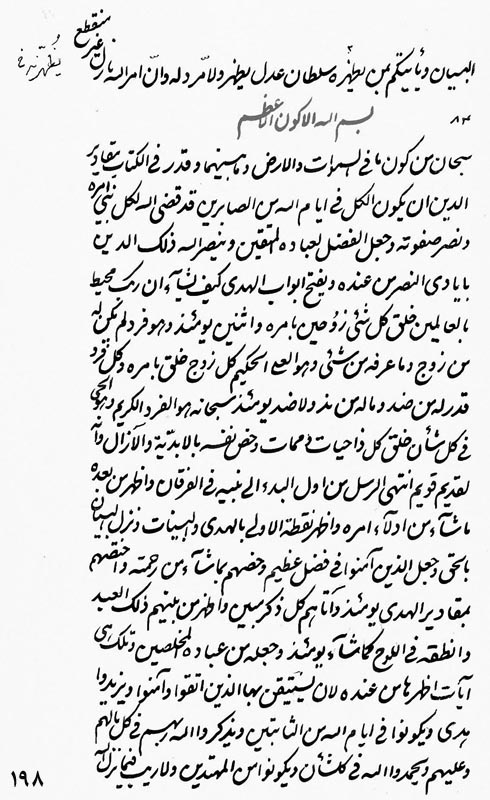 منقطع
نازل غیر
و یظهرنه فی
البیان و یأتینکم بمن یظهره سلطان عدل یظهر و لا مرد له و ان امر الله
۸۲ بسم الله الاکون الاعظم
سبحان من کون ما فی السموات و الارض و ما بینهما و قدر فی الکتاب مقادیر
الدین ان یکون الکل فی ایام الله من الصابرین قد قضی الله لکل نبی امره
و نصر صفوته و جعل الفضل لعباده المتقین و ینصر الله ذلک الدین
بایادی النصر من عنده و یفتح ابواب الهدی کیف یشآء ان ربک محیط
بالعالمین خلق کل شئی زوجین بامره و اثنین یومئذ و هو فرد لم یکن له
من زوج و ما عرفه من شئی و هو العلی الحکیم کل زوج خلق بامره و کل فرد
قدر له من ضد و ما له من ند و لا ضد یومئذ سبحانه هو الفرد الکریم و هو الحی
فی کل شأن خلق کل ذا حیات و ممات و خص نفسه بالابدیة و الآزال و انه
لقدیم قویم انتهی الرسل من اول البدء الی نبیه فی الفرقان و اظهر من بعده
ما شآء من ادلآء امره و اظهر نقطة الاولی بالهدی و البینات و نزل البیان
بالحق و جعل الذین آمنوا فی فضل عظیم و خصهم بما شآء من رحمته و اختصهم
بمقادیر الهدی یومئذ و آتاهم کل ذکر مبین و اظهر من بینهم ذلک العبد
و انطقه فی اللوح کما شآء یومئذ و جعله من عباده المخلصین و تلک هی
آیات اظهرها من عنده لان یستیقن بها الذین اتقوا و آمنوا و یزیدوا
هدی و یکونوا فی ایام الله من الثابتین و یذکروا الله ربهم فی کل ما لهم
و علیهم و یحمدوا الله فی کل شأن و یکونوا من المهتدین و لا ریب فیما نزل الله
۱۹۸